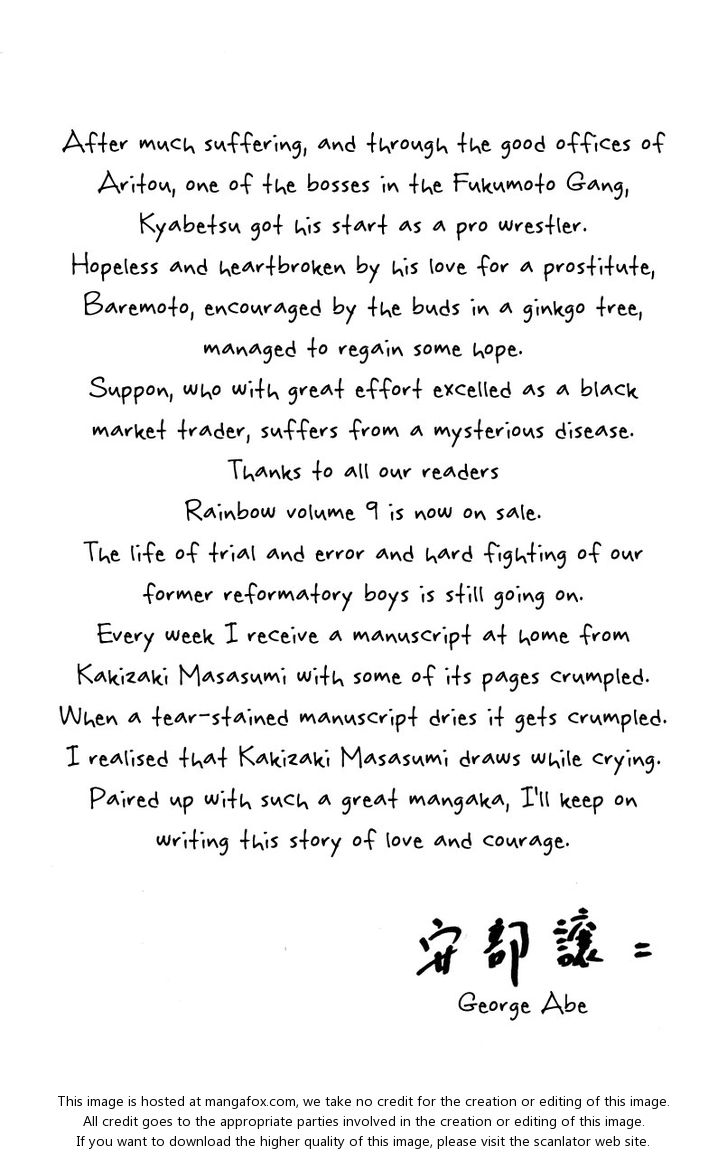 After much suffering, and through the good offices of
Aritou, one of the bosses in the Fukumoto Gang,
Kyabetsu got his start as a pro wrestler.
Hopeless and heartbroken by his love for a prostitute,
Baremoto, encouraged by the buds in a ginkgo tree,
managed to regain some hope.
Suppon, who with great effort excelled as a black
market trader, suffers from a mysterious disease.
Thanks to all our readers
Rainbow volume 9 is now on sale.
The life of trial and error and hard fighting of our
former reformatory boys is still going on.
Every week I receive a manuscript at home from
Kakizaki Masasumi with some of its pages crumpled.
When a tear-stained manuscript dries it gets crumpled.
I realised that Kakizaki Masasumi draws while crying.
Paired up with such a great mangaka, I'll keep on
writing this story of love and courage.
安部譲二
George Abe
This image is hosted at mangafox.com, we take no credit for the creation or editing of this image.
All credit goes to the appropriate parties involved in the creation or editing of this image.
If you want to download the higher quality of this image, please visit the scanlator web site.